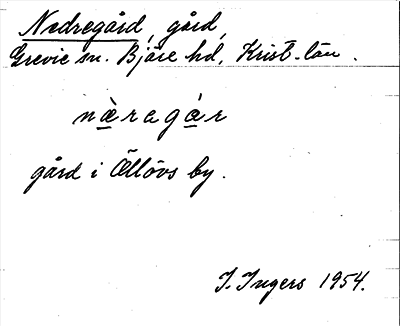 Nedregård, gård,
Grevie sn. Bjäre hd, Krist. län.
næ̀ragár
gård i Ällövs by.
I. Ingers 1954.